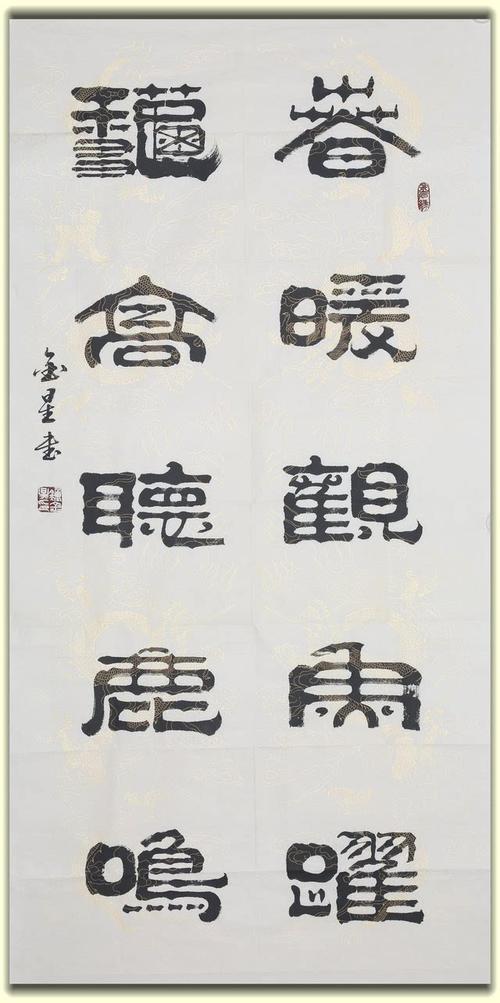 春暖觀魚躍
龝高聽鹿鳴
金星書